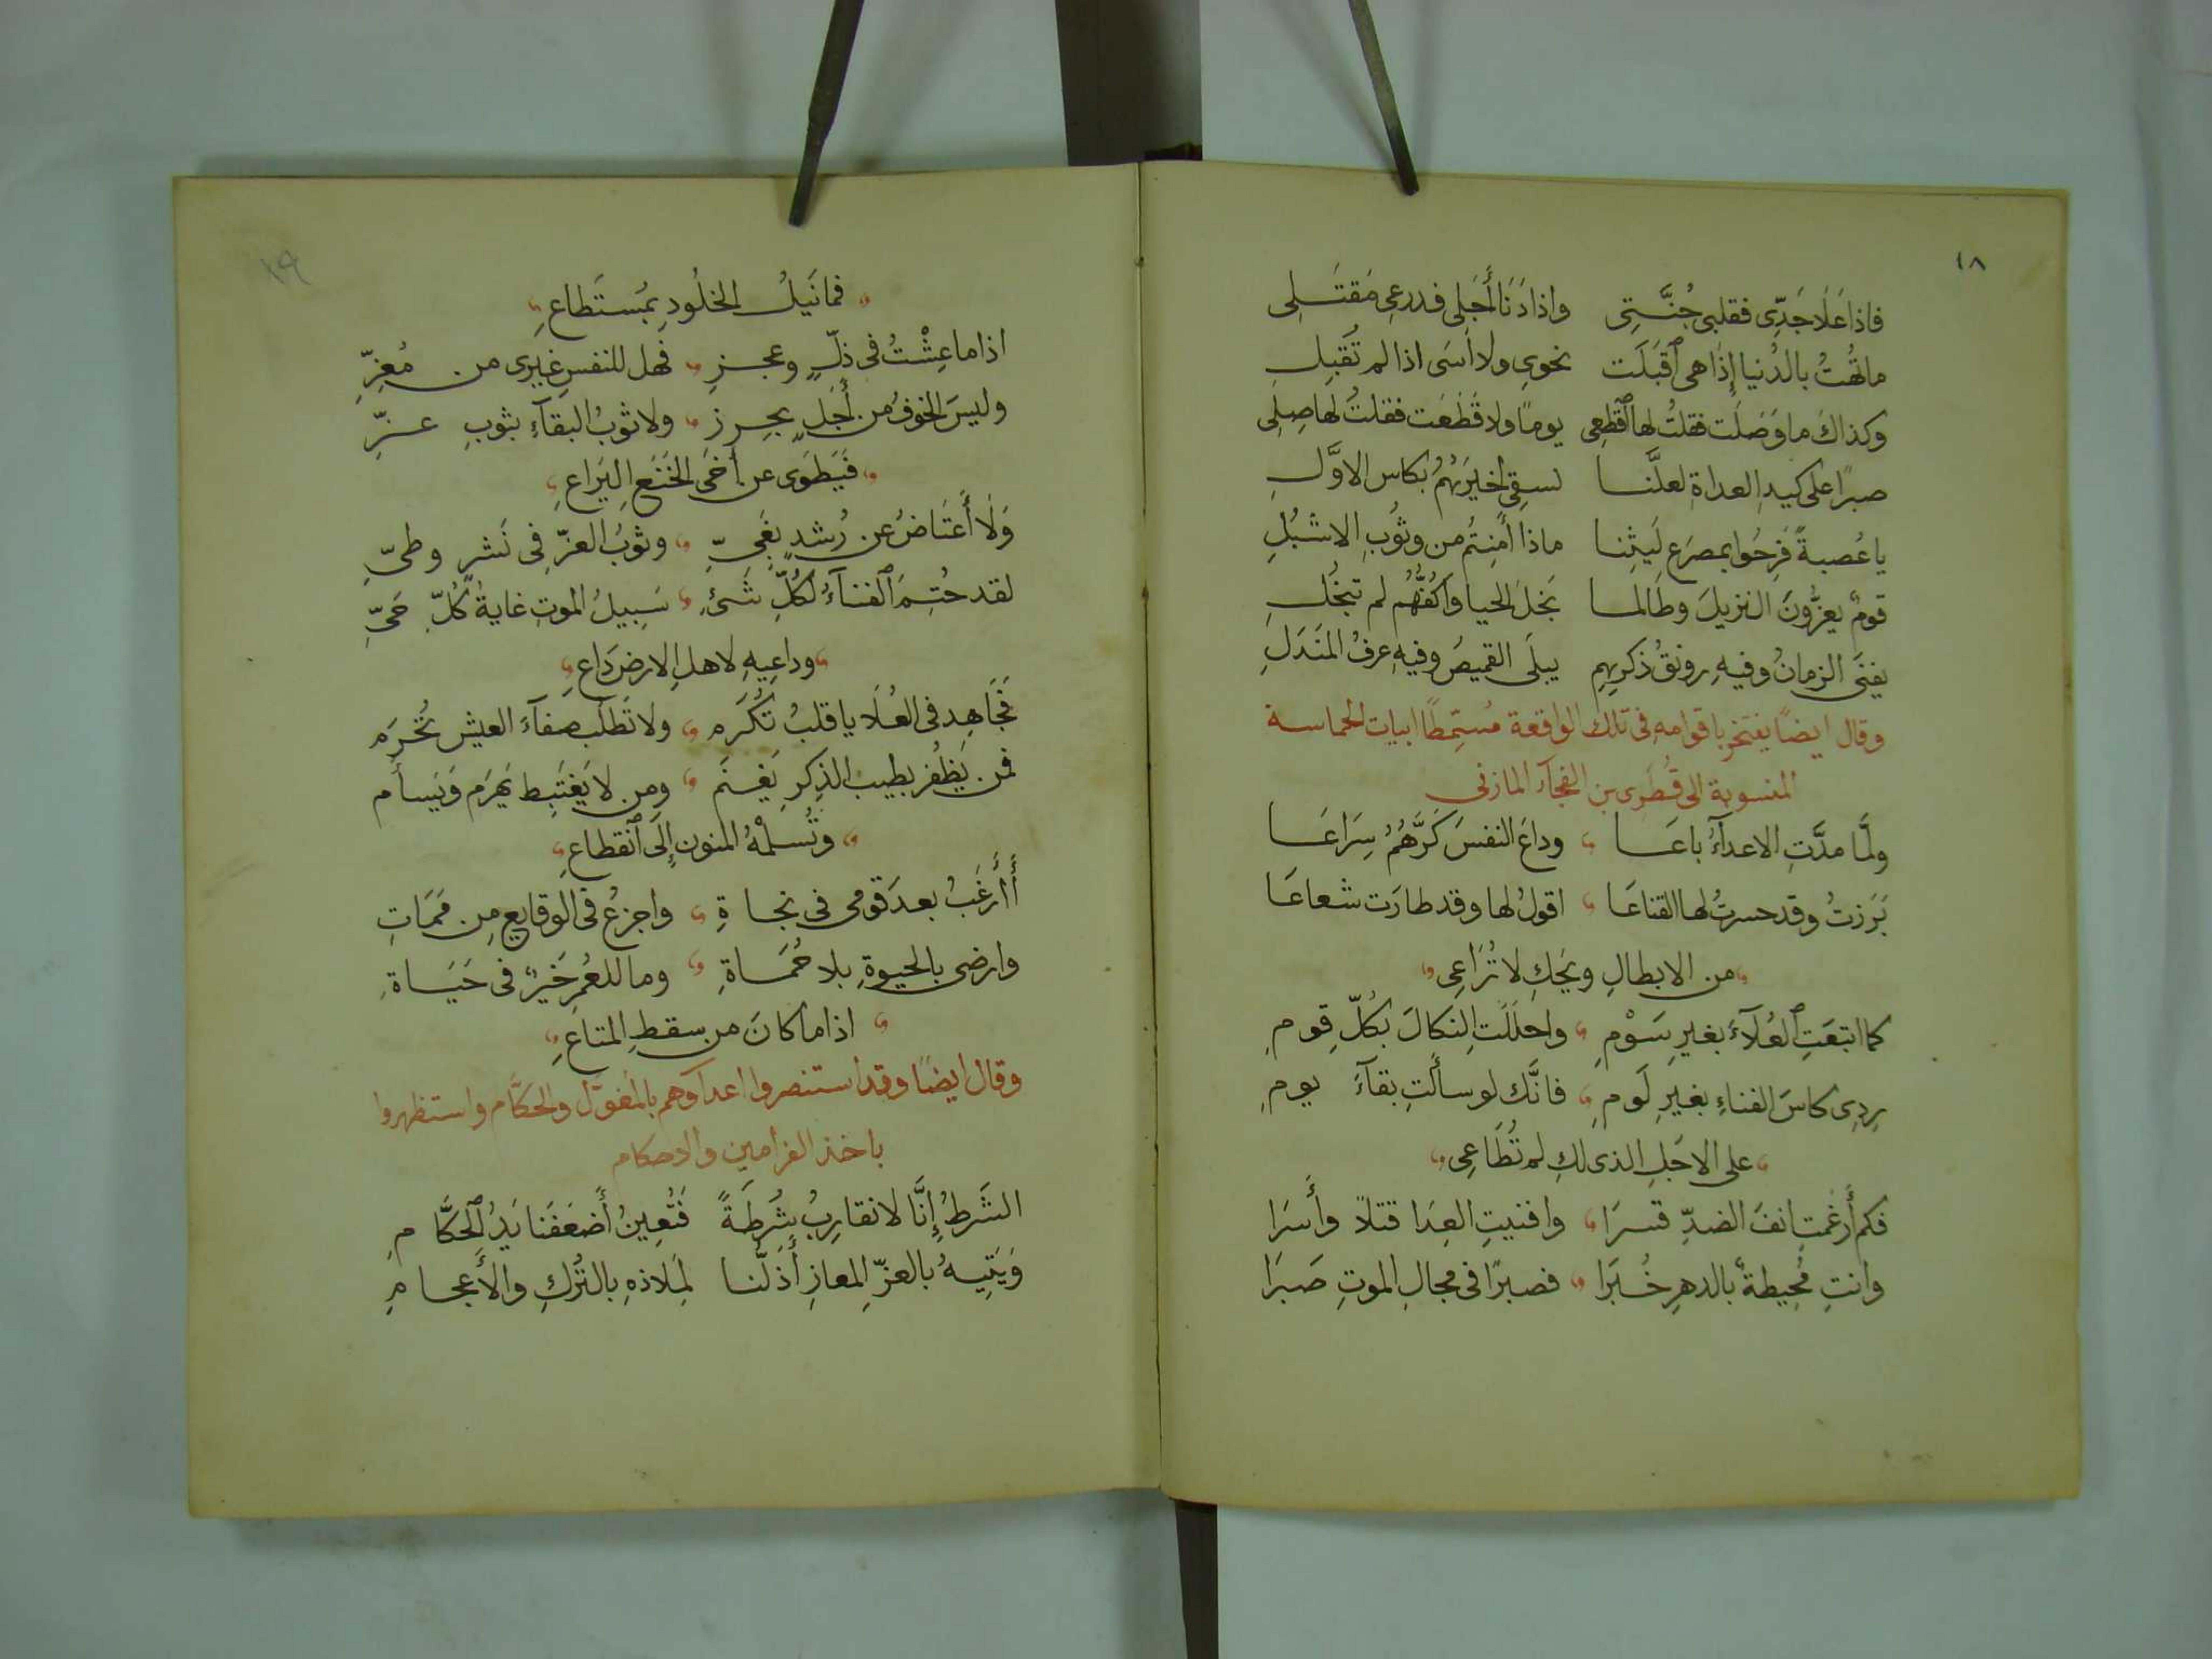 ١٨
فاذا عَلَا جَدّى فقلبى جُنَّتِى واذا دَنَا أَجَلِى فدرعى مَقتَلِى
ما تُهتُ بالدُنيا إِذَا هى ٱقبَلَت نحوى ولا اَسَى اذا لم تُقبِلِ
وكذاك ما وَصَلَت فقلتُ لها ٱقطعِى يومًا ولا قَطَعَت فقلتُ لها صِلِى
صبرًا على كيدِ العداةِ لعلَّنا لسقِى اخيَرَهُم بكاس الاوَّلِ
يا عُصبةً فَرِحُوا بمصرَعِ لَيثِنا ماذا أَمِنتُم من وثُوبِ الاشبُلِ
قومٌ يعزُّونَ النزيلَ وطَالما بَخَلَ الحيا وَاَكُفُّهُم لم تبخُلِ
يفنَى الزمانُ وفيهِ رونقُ ذكرِهِم يبلَى القميصُ وفيهِ عرفُ المَندَلِ
وقال ايضًا يفتخر باقوامهِ فى تلك الواقعة مُسَمِّطًا ابيات الحماسة
المنسوبة الى قُطَرِى بن الفجآة المازنى
ولَّما مدَّتِ الاعدآءُ باعَا وداعَ النفسَ كَرَّهُمُ سِرَاعَا
بَرَزتُ وقد حسرتُ لها القناعَا اقولُ لها وقد طارَت شعاعَا
من الابطالِ ويحَكِ لا تُرَاعِى
كما ابتعَتِ ٱلعُلآءَ بغيرِ سَوْمِ واحلَلَتِ النكالَ بكُلِّ قومِ
رِدِى كاسَ الفناءِ بغيرِ لَومِ فانَّك لو سألتِ بقآءَ يومِ
على الاجَلِ الذى لكِ لم تُطَاعِى
فكم أَرغمتِ انفَ الضدِّ قسرَا وافنيتِ العِدَا قتلاً وأَسرَا
وانتِ مُحِيطةٌ بالدهرِ خُبرَا فصبرًا فى مجالِ الموتِ صَبرَا
١٩
فما نَيلُ الخلُودِ بمُستَطاعِ
اذا ما عِشْتُ فى ذلٍّ وعجزٍ فهل للنفسِ غيرى من مُعِزِّ
وليسَ الخوفُ من أَجَلٍ بحرِزِ ولا ثوبُ البقآءِ بثوبِ عزِّ
فَيُطوَى عن أَخى الخَنَعِ اليَراعِ
وَلَا أَعتَاضُ عن رُشدٍ بِغَيِّ وثوبُ العزّ فِى نَشرٍ وطىِّ
لقد حُتِمَ ٱلفنآءُ لكُلِّ شَىءٍ سَبِيلُ الموتِ غايةُ كُلِّ حَىِّ
وداعِيهِ لاهلِ الارضِ دَاعِ
فَجَاهِد فى العُلَا يا قلبُ تُكْرَم ولا تَطلُب صفآءَ العيش تُحْرَم
فمن يَظفَر بطيبِ الذِكرِ يَغنَم ومن لا يَغتَبِط يَهرَم وَيَسأَم
وَتُسلِمْهُ المنون إِلَى ٱنقطاعِ
أَأَرغَبُ بعدَ قومى فى نجاةِ واجزعُ فى الوقايعِ مِن مَمَاتِ
وارضى بالحيوةِ بلا حُمَاةِ وما للعُمرِ خَيرٌ فى حَيَاةِ
اذا ما كانَ من سقطِ المتاعِ
وقال ايضًا وقد استنصروا اعداؤهم بالمُغوَل والحكَّام واستظهروا
باخذ الفرامين والاحكام
الشَرطُ إِنَّا لا نقارِبُ شُرطَةً فَتُعِينُ أَضعَفَنا يَدُ ٱلحكَّامِ
وَيَتِيهُ بالعزِّ المعازِ أَذَلُّنا لمِلاذهِ بالتُركِ والأَعجامِ